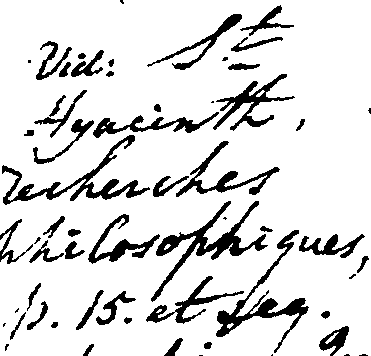 Vid: St
Hyacinth,
recherches
philosophiques,
p. 15. et seq.